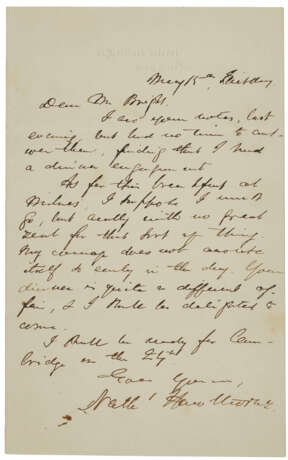 May 15th, Tuesday
Dear Mr Bright.
I saw your notes, last
evening, but had no time to ans-
wer them, finding that I had
a dinner engagement.
As for this breakfast at
Milnes', I suppose I must
go, but really with no great
zest for that sort of thing.
My courage does not
itself so early in the day. Your
dinner is quite a different af-
fair, & I shall be delighted to
come.
I shall be ready for Cam-
bridge on the 24th
Your,
Nathl Hawthorne.